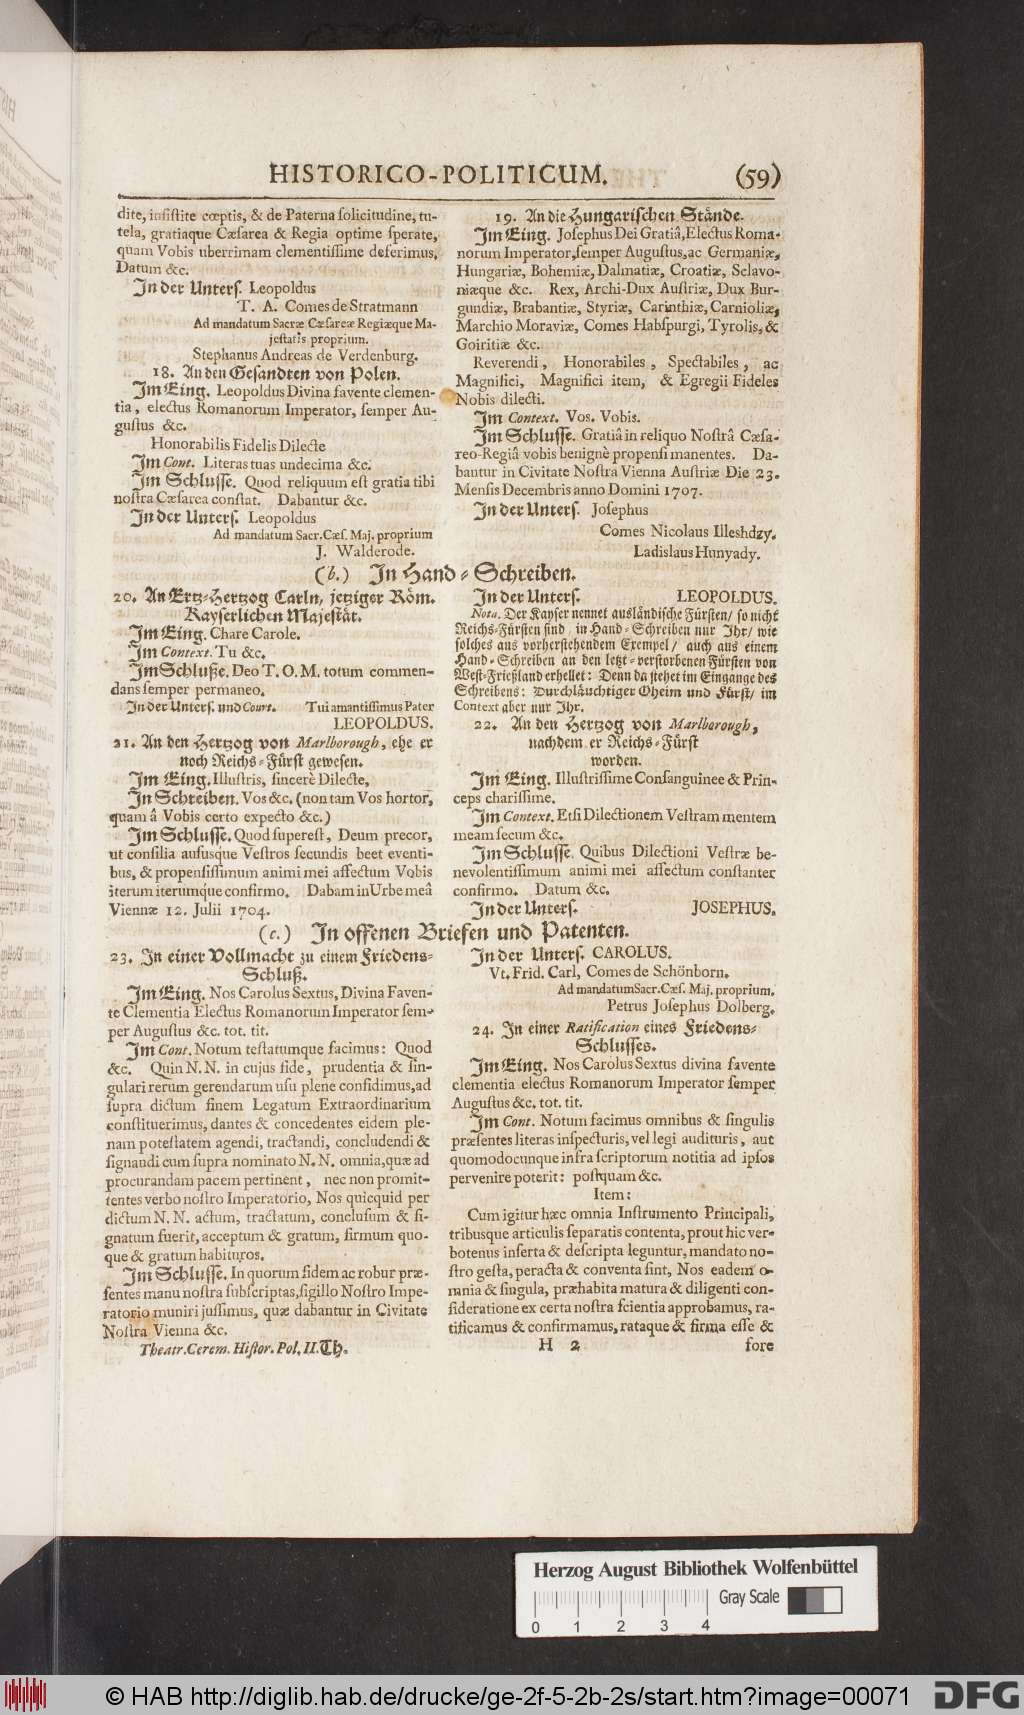 HISTORICO-POLITICUM. (59)
dite, insistite cœptis, & de Paterna solicitudine, tu-
tela, gratiaque Cæsarea & Regia optime sperate,
quam Vobis uberrimam clementissime deferimus,
Datum &c.
In der Unters. Leopoldus
T. A. Comes de Stratmann
Ad mandatum Sacræ Cæsareæ Regiæque Ma-
jestatis proprium.
Stephanus Andreas de Verdenburg.
18. An den Gesandten von Polen.
Im Eing. Leopoldus Divina favente clemen-
tia, electus Romanorum Imperator, semper Au-
gustus &c.
Honorabilis Fidelis Dilecte
Im Cont. Literas tuas undecima &c.
Im Schlusse. Quod reliquum est gratia tibi
nostra Cæsarea constat. Dabantur &c.
In der Unters. Leopoldus
Ad mandatum Sacr. Cæs. Maj. proprium
J. Walderode.
19. An die Hungarischen Stände.
Im Eing. Josephus Dei Gratiâ, Electus Roma-
norum Imperator, semper Augustus, ac Germaniæ,
Hungariæ, Bohemiæ, Dalmatiæ, Croatiæ, Sclavo-
niæque &c. Rex, Archi-Dux Austriæ, Dux Bur-
gundiæ, Brabantiæ, Styriæ, Carinthiæ, Carnioliæ,
Marchio Moraviæ, Comes Habspurgi, Tyrolis, &
Goiritiæ &c.
Reverendi, Honorabiles, Spectabiles, ac
Magnifici, Magnifici item, & Egregii Fideles
Nobis dilecti.
Im Context. Vos. Vobis.
Im Schlusse. Gratiâ in reliquo Nostrâ Cæsa-
reo-Regiâ vobis benignè propensi manentes. Da-
bantur in Civitate Nostra Vienna Austriæ Die 23.
Mensis Decembris anno Domini 1707.
In der Unters. Josephus
Comes Nicolaus Illeshdzy.
Ladislaus Hunyady.
(b.) In Hand-Schreiben.
20. An Ertz-Hertzog Carln, jetziger Röm.
Kayserlichen Majestät.
Im Eing. Chare Carole.
Im Context. Tu &c.
Im Schluße. Deo T. O. M. totum commen-
dans semper permaneo.
In der Unters. und Court. Tui amantissimus Pater
LEOPOLDUS.
21. An den Hertzog von Marlborough, ehe er
noch Reichs-Fürst gewesen.
Im Eing. Illustris, sincerè Dilecte,
In Schreiben. Vos &c. (non tam Vos hortor,
quam â Vobis certo expecto &c.)
Im Schlusse. Quod superest, Deum precor,
ut consilia aususque Vestros secundis beet eventi-
bus, & propensissimum animi mei affectum Vobis
iterum iterumque confirmo. Dabam in Urbe meâ
Viennæ 12. Julii 1704.
In der Unters. LEOPOLDUS.
Nota. Der Kayser nennet ausländische Fürsten/ so nicht
Reichs-Fürsten sind in Hand-Schreiben nur Ihr/ wie
solches aus vorherstehendem Exempel/ auch aus einem
Hand-Schreiben an den letzt-verstorbenen Fürsten von
West-Frießland erhellet: Denn da stehet im Eingange des
Schreibens: Durchläuchtiger Oheim und Fürst/ im
Context aber nur Ihr.
22. An den Hertzog von Marlborough,
nachdem er Reichs-Fürst
worden.
Im Eing. Illustrissime Consanguinee & Prin-
ceps charissime.
Im Context. Etsi Dilectionem Vestram mentem
meam secum &c.
Im Schlusse. Quibus Dilectioni Vestræ be-
nevolentissimum animi mei affectum constanter
confirmo. Datum &c.
In der Unters. JOSEPHUS.
(c.) In offenen Briefen und Patenten.
23. In einer Vollmacht zu einem Friedens-
Schluß.
Im Eing. Nos Carolus Sextus, Divina Faven-
te Clementia Electus Romanorum Imperator sem-
per Augustus &c. tot. tit.
Im Cont. Notum testatumque facimus: Quod
&c. Quin N. N. in cujus fide, prudentia & sin-
gulari rerum gerendarum usu plene confidimus, ad
supra dictum finem Legatum Extraordinarium
constituerimus, dantes & concedentes eidem ple-
nam potestatem agendi, tractandi, concludendi &
signaudi cum supra nominato N. N. omnia, quæ ad
procurandam pacem pertinent, nec non promit-
tentes verbo nostro Imperatorio, Nos quicquid per
dictum N. N. actum, tractatum, conclusum & si-
gnatum fuerit, acceptum & gratum, firmum quo-
que & gratum habituros.
Im Schlusse. In quorum fidem ac robur præ-
sentes manu nostra subscriptas, sigillo Nostro Impe-
ratorio muniri jussimus, quæ dabantur in Civitate
Nostra Vienna &c.
Theatr. Cerem. Histor. Pol. II. Th.
In der Unters. CAROLUS.
Vt. Frid. Carl, Comes de Schönborn.
Ad mandatum Sacr. Cæs. Maj. proprium.
Petrus Josephus Dolberg.
24. In einer Ratification eines Friedens-
Schlusses.
Im Eing. Nos Carolus Sextus divina favente
clementia electus Romanorum Imperator semper
Augustus &c. tot. tit.
Im Cont. Notum facimus omnibus & singulis
præsentes literas inspecturis, vel legi audituris, aut
quomodocunque infra scriptorum notitia ad ipsos
pervenire poterit: postquam &c.
Item:
Cum igitur hæc omnia Instrumento Principali,
tribusque articulis separatis contenta, prout hic ver-
botenus inserta & descripta leguntur, mandato no-
stro gesta, peracta & conventa sint, Nos eadem o-
mnia & singula, præhabita matura & diligenti con-
sideratione ex certa nostra scientia approbamus, ra-
tificamus & confirmamus, rataque & firma esse &
H 2 fore
Herzog August Bibliothek Wolfenbüttel
Gray Scale
0 1 2 3 4
© HAB http://diglib.hab.de/drucke/ge-2f-5-2b-2s/start.htm?image=00071
DFG